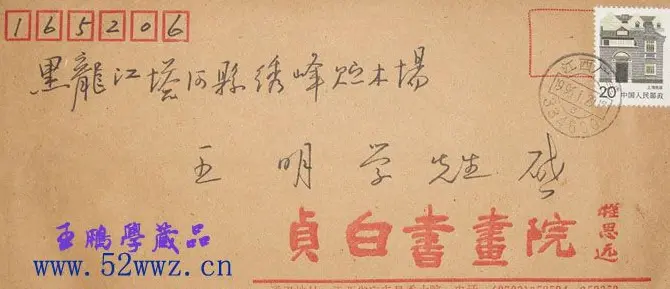 165206
黑龍江塔河縣绣峰贮木場
王明学先生 啟
貞白書畫院
程思远
王鵬學藏品
www.52wwz.cn
江西
20
上海民居
中国人民邮政